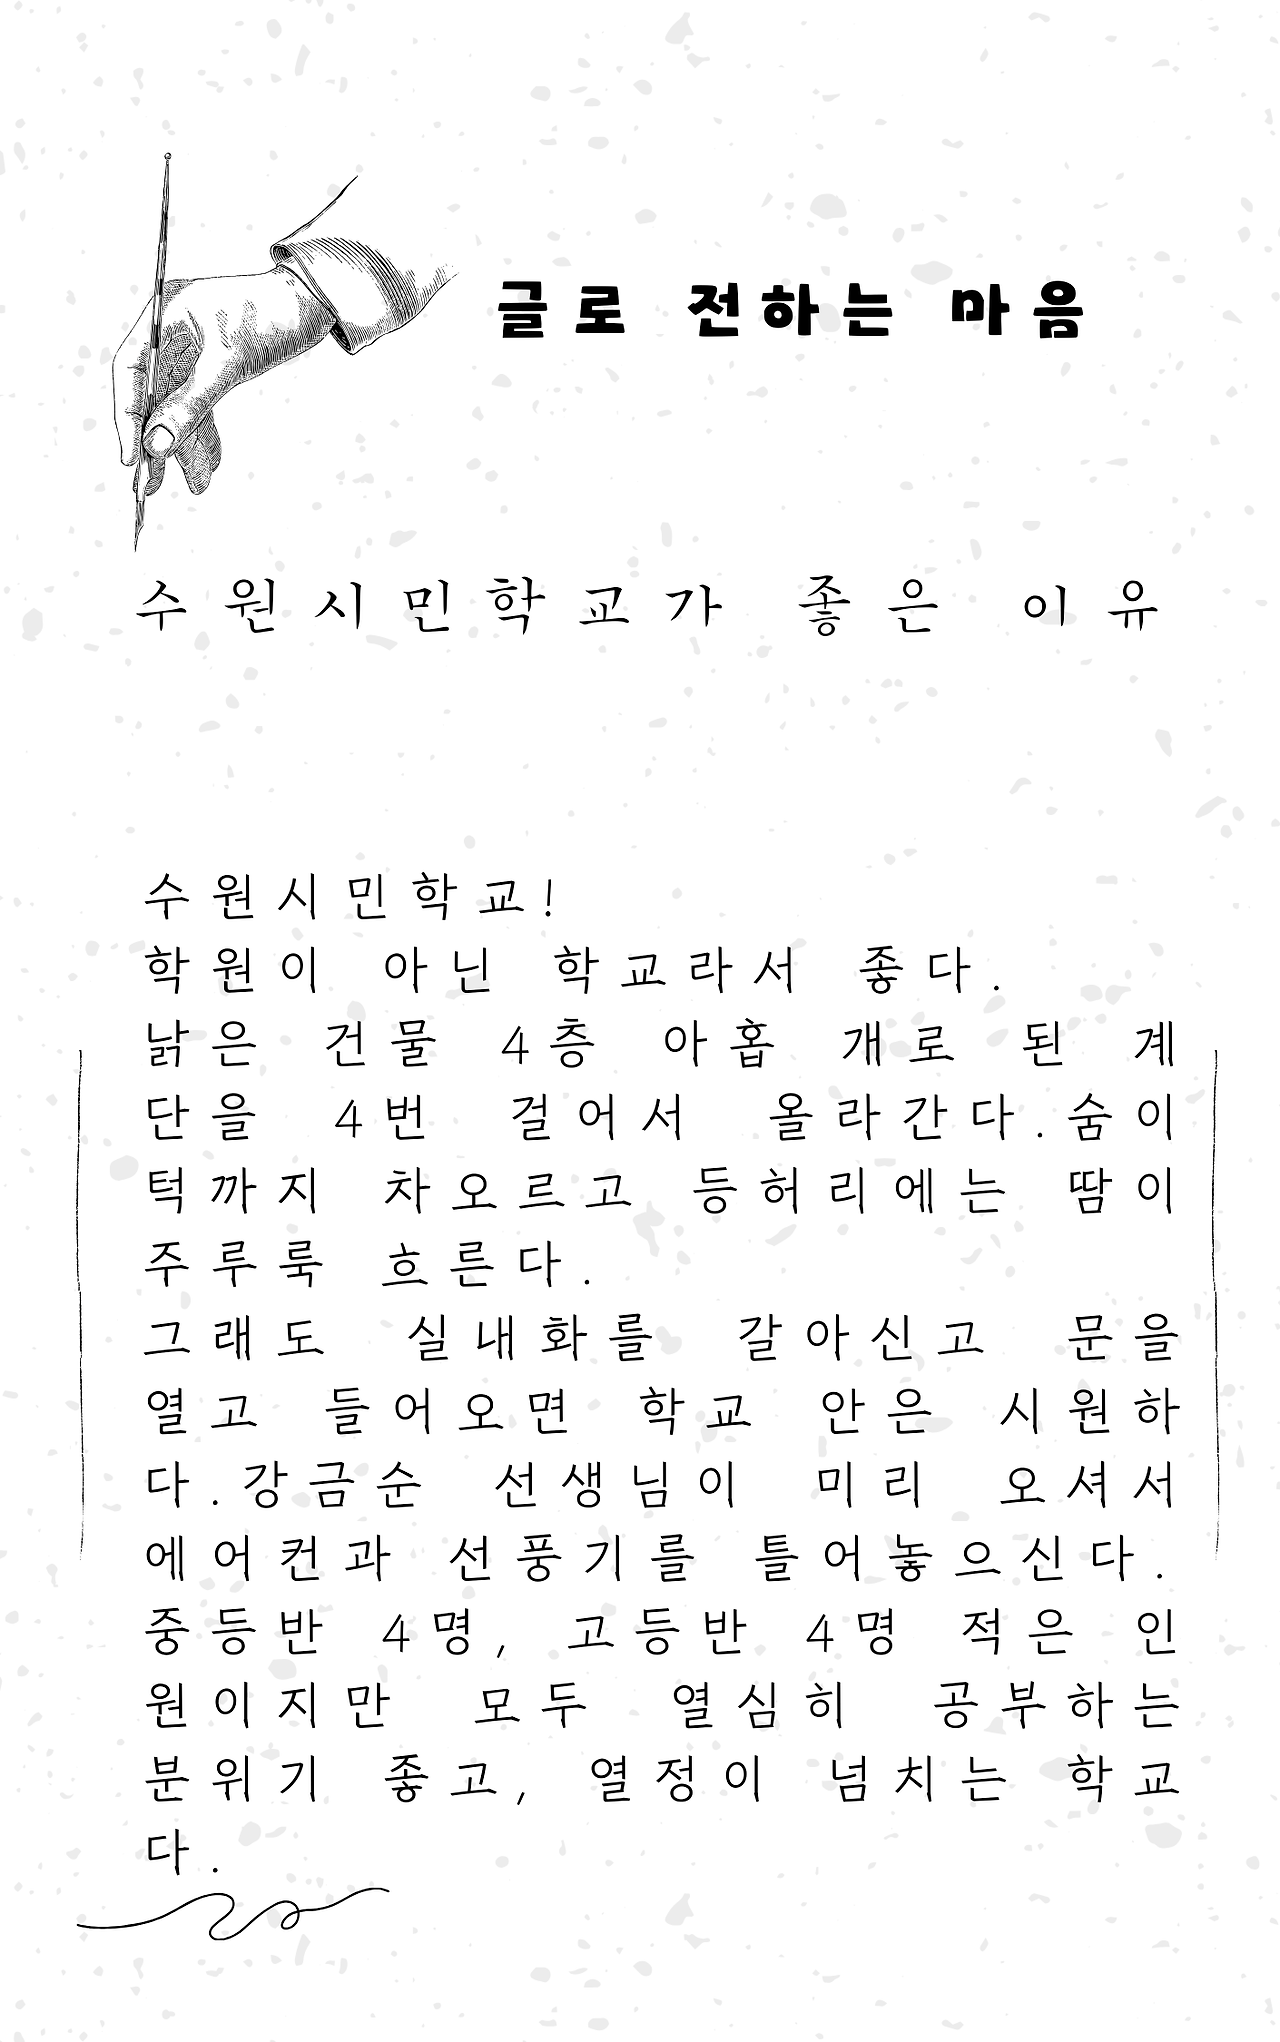 글로 전하는 마음
수원시민학교가 좋은 이유
수원시민학교!
학원이 아닌 학교라서 좋다.
낡은 건물 4층 아홉 개로 된 계
단을 4번 걸어서 올라간다.숨이
턱까지 차오르고 등허리에는 땀이
주루룩 흐른다.
그래도 실내화를 갈아신고 문을
열고 들어오면 학교 안은 시원하
다.강금순 선생님이 미리 오셔서
에어컨과 선풍기를 틀어놓으신다.
중등반 4명, 고등반 4명 적은 인
원이지만 모두 열심히 공부하는
분위기 좋고, 열정이 넘치는 학교
다.